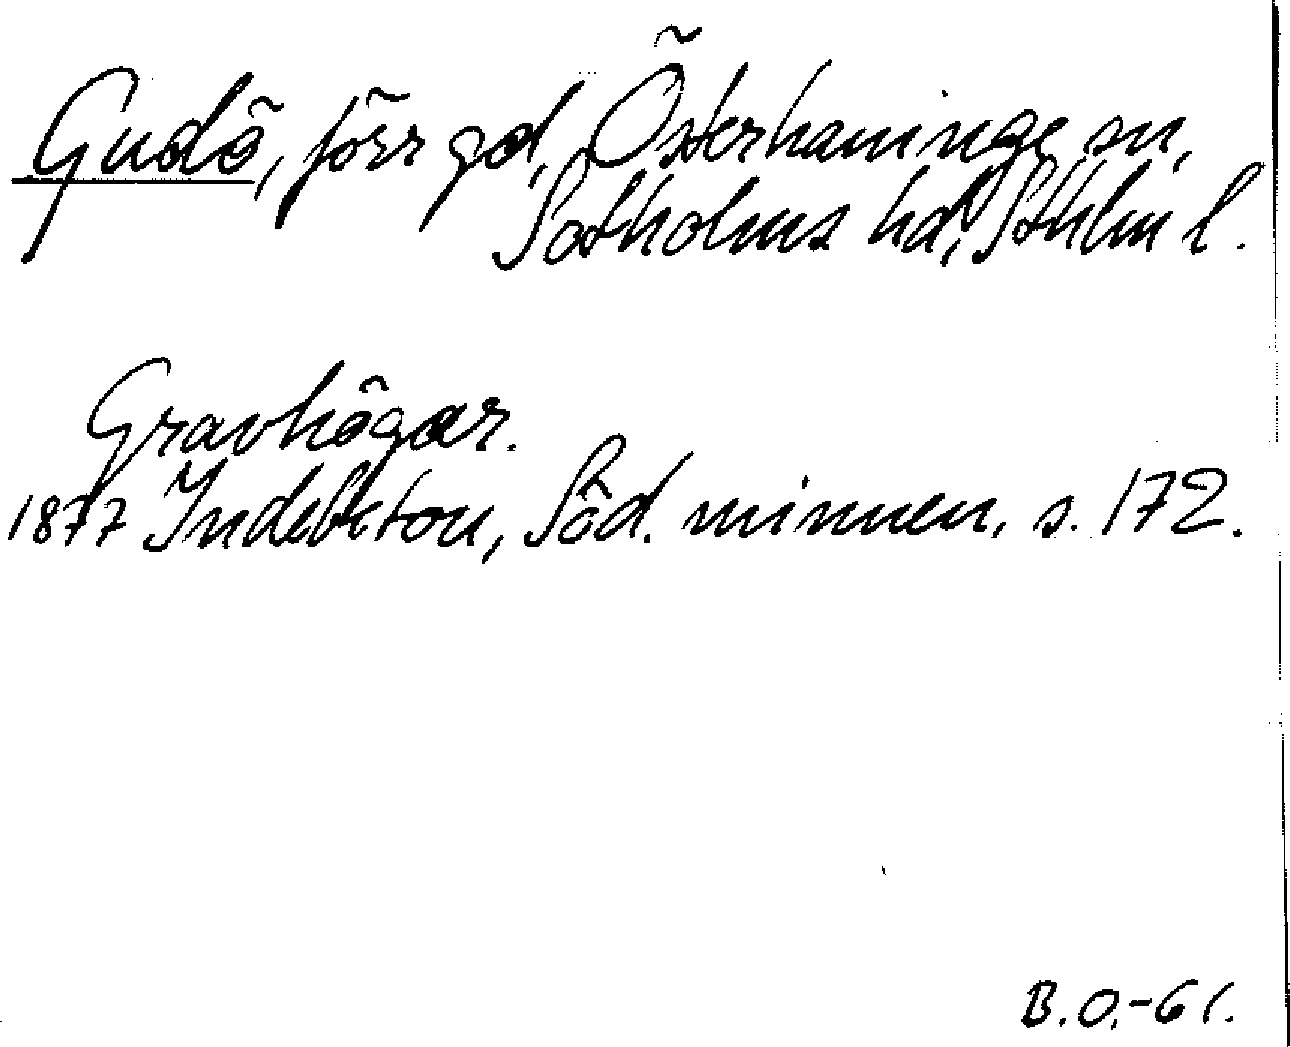 Gudö, förr gd, Österhaninge sn,
Sotholms hd, Sthlm l.
Gravhögar.
1877 Indebetou, Söd. minnen, s. 172.
B.O.-61.